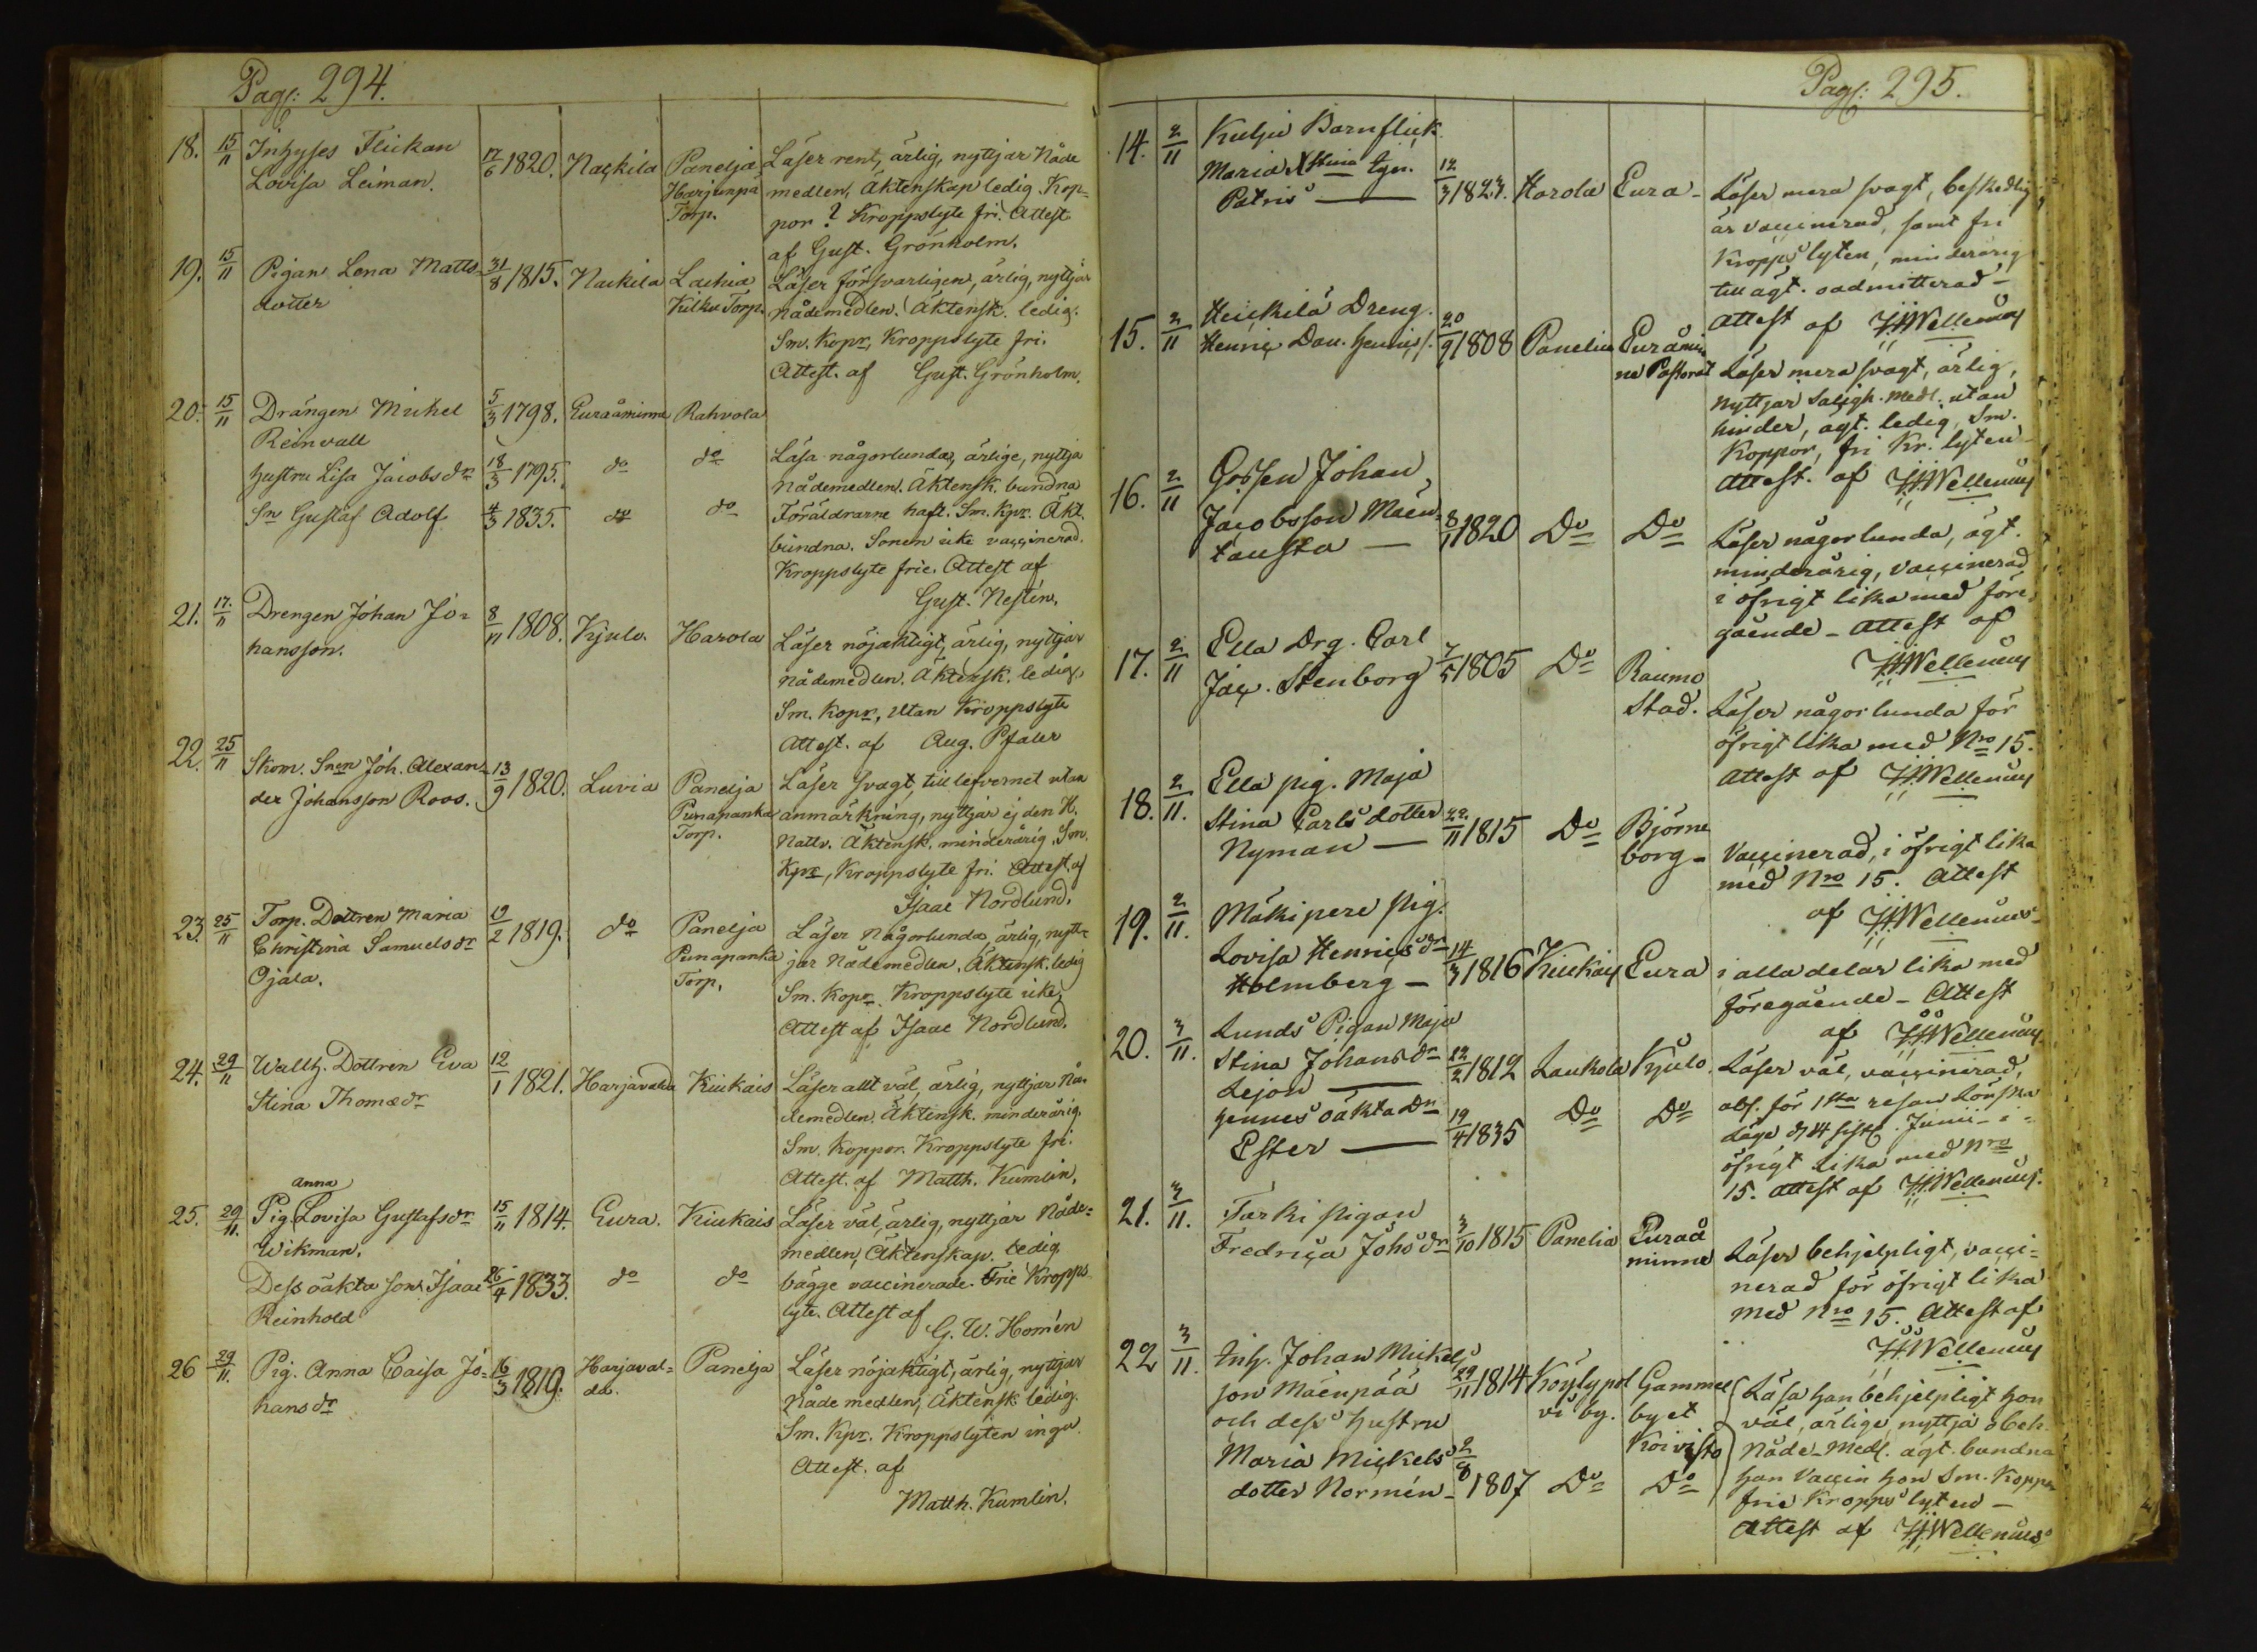 Pag: 294.
18. 15/11 Inhyses Flickan 17/6 1820. Nackila Panelja Läser rent, ärlig, nyttjar Nåde
Lovisa Leiman. Harjunpä medlen, Äktenskap ledig Kop-
Torp. por? Kroppslyte fri. Attest
af Gust. Grönholm.
19. 15/11 Pigan Lena Matts- 31/8 1815. Nackila Lachia Läser försvarligen, ärlig, nyttjar
dotter Kilku Torp. nådemedlen. Äktensk. ledig.
Sm. Kopr, Kroppslyte fri.
Attest. af Gust. Grönholm.
20. 15/11 Drängen Michel 5/3 1798. Euraåminne Rahvola
Reinvall
hustru Lisa Jacobsdr 18/3 1795. do do Läsa någorlunda, ärlige, nyttja
nådemedlen. Äktensk. bundna
Sn Gustaf Adolf 4/3 1835. do do Föräldrarne haft. Sm. Kpr. Äkt.
bundna. Sonen icke vaccinerad.
Kroppslyte frie. Attest af
Gust. Nestén.
21. 17/11 Drengen Johan Jo- 8/11 1808. Kjulo. Harola Läser nöjaktigt, ärlig, nyttjar
hansson. nådemedlen. Äktensk. ledig,
Sm. Kopr, utan Kroppslyte
Attest. af Aug. Pfaler
22. 25/11 Skom. Snen Joh. Alexan- 13/9 1820. Luvia Panelja Läser svagt, till lefvernet utan
der Johansson Roos. Punapanka anmärkning, nyttjar ej den H.
Torp. Nattv. Äktensk. minderårig. Sm.
Kpr, Kroppslyte fri. Attest af
Isaac Nordlund.
23. 25/11 Torp. Dottren Maria 19/2 1819. do Panelja Läser Någorlunda, ärlig, nytt-
Christina Samuelsdr Punapanka jar Nådemedlen. Äktensk. ledig
Ojala. Torp. Sm. Kopr Kroppslyte icke,
Attest af Isaac Nordlund.
24. 29/11 Wallh. Dottren Eva 12/1 1821. Harjavalda Kiukais Läser allt väl, ärlig, nyttjar Nå-
Stina Thomædr demedlen. Äktensk. minderårig.
Sm. Koppor. Kroppslyte fri.
Attest. af Matth. Kumlin.
anna
25. 29/11. Pig. Lovisa Gustafsdr 15/11 1814. Eura. Kiukais Läser väl, ärlig, nyttjar Nåde-
Wikman. medlen, Äktenskap. ledig.
Dess oäkta son Isaac 26/4 1833. do do bägge vaccinerade. Frie Kropps
Reinhold lyte. Attest af
G. W. Homén
26 29/11. Pig. Anna Caisa Jo- 16/3 1819. Harjaval- Panelja Läser nöjaktigt, ärlig, nyttjar
hansdr da. Nåde medlen, Äktensk. ledig.
Sm. Kpr. Kroppslyten inga.
Attest. af
Matth. Kumlin.
Pag: 295.
14. 2/11 Kulju Barnflick
Maria Stina tgn. 12/3 1823. Harola Eura- Läser mera svagt, beskedlig
Patris är vaccinerad, samt fri
Kropps lyten, minderårig
till ägt. oadmitterad-
Attest af Wellenius
15. 2/11 Heickilä Dreng.
Henric Dan. Henrics. 20/9 1808 Panelia Euråmin
ne Pastorat Läser mera svagt, ärlig,
nyttjar Saligh. medl. utan
hinder, ägt. ledig, Sm.
Koppor, fri Kr. lyten-
Attest. af Wellenius
16. 2/11 Gossen Johan
Jacobsson Mäen-
tausta 8/1 1820 Do Do Läser någorlunda, ägt.
minderårig, vaccinerad
i öfrigt lika med före
gående- Attest af
Wellenius
17. 2/11 Ella Drg. Carl
Jac. Stenborg 7/5 1805 Do Raumo
Stad. Läser någorlunda för
öfrigt lika med Nro 15.
Attest af Wellenius
18. 2/11. Ella pig. Maja
Stina Carls dotter 22/11 1815 Do Björne
Nyman borg- Vaccinerad, i öfrigt lika
med Nro 15. Attest
af Wellenius
19. 2/11. Mäkipere Pig.
Lovisa Henricsdr 14/3 1816 Kiukais Eura i alla delar lika med
Holmberg föregående- Attest
af Wellenius
20. 3/11. Lunds Pigan Maja
Stina Johansdr 22/2 1812 Laukola Kjulo. Läser väl, vaccinerad,
Lejon abs. för 1sta resan Lönska
hennes oäkta dr 19/4 1835 Do Do läge d 14 sistl. Junii- i
Ester öfrigt lika med Nro
15. Attest af Wellenius.
21. 3/11. Tarki pigan
Fredrica Johsdr 3/10 1815 Panelia Euraå
minne Läser behjelpligt, vacci-
nerad för öfrigt lika
med Nro 15. Attest af
Wellenius
22 3/11. Inh. Johan Mickels
son Mäenpää 29/11 1814 Köylypol Gammel Läsa han behjelpligt hon
och dess hustru vi by. byet väl, ärlige, nyttja obeh.
Koivisto Nåde-Medl. ägt. bundna
Maria Mickels 2/8
dotter Normén- 1807 Do Do han Vaccin hon Sm. Koppor
frie Kropps lyten-
Attest af Wellenius